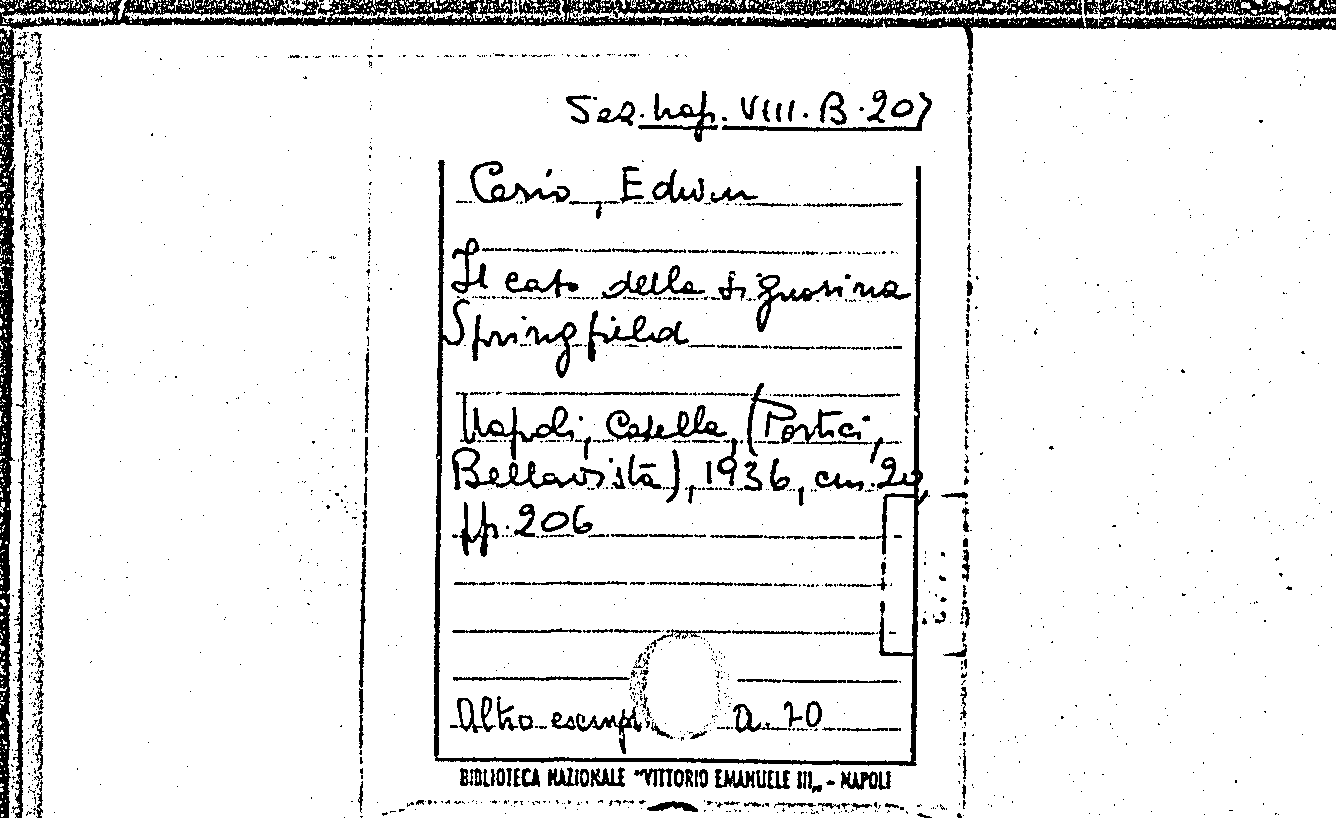 Sez. Nap. VIII. B. 207
Cerio, Edwin
Il caso della signorina
Springfield
Napoli, Casella, (Portici,
Bellavista), 1936, cm. 20,
pp. 206
Altro esempl a. 70
BIBLIOTECA NAZIONALE "VITTORIO EMANUELE III„ - NAPOLI